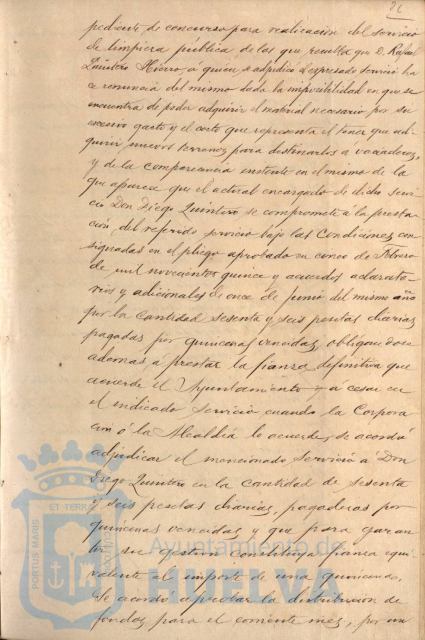 pediente de concurso para realización del servicio
de limpieza pública de los que resulta que D. Rafael
Quintero Hierro, á quien se adjudicó el espresado servicio ha
ce renuncia del mismo dada la imposibilidad en que se
encuentra de poder adquirir el material necesario por su
escesivo gasto y el costo que representa el tener que ad-
quirir nuevos terrenos para destinarlos á vaciaderos,
y de la comparecencia en el mismo de la
que aparece que el actual encargado de dicho servi
cio Don Diego Quintero se compromete a la presta
ción del referido servicio bajo las condiciones con
signadas en el pliego aprobado en cinco de Febrero
de mil novecientos quince y acuerdos aclarato-
rios y adicionales de once de Junio del mismo año
por la cantidad sesenta y seis pesetas diarias
pagadas por quincenas vencidas, obligandose
ademas á prestar la fianza definitiva que
acuerde el Ayuntamiento y á cesar en
el indicado servicio cuando la Corpora
cion ó la Alcaldía lo acuerde, se acordó
adjudicar el mencionado servicio á Don
Diego Quintero en la cantidad de sesenta
y seis pesetas diarias, pagaderas por
quincenas vencidas y que para garan
tir su gestión constituya fianza equi
valente al importe de una quincena.
Se acordó aprobar la distribución de
fondos para el corriente mes, por un
PORTUS MARIS ET TERRAE CUSTODIA
Ayuntamiento de
HUELVA